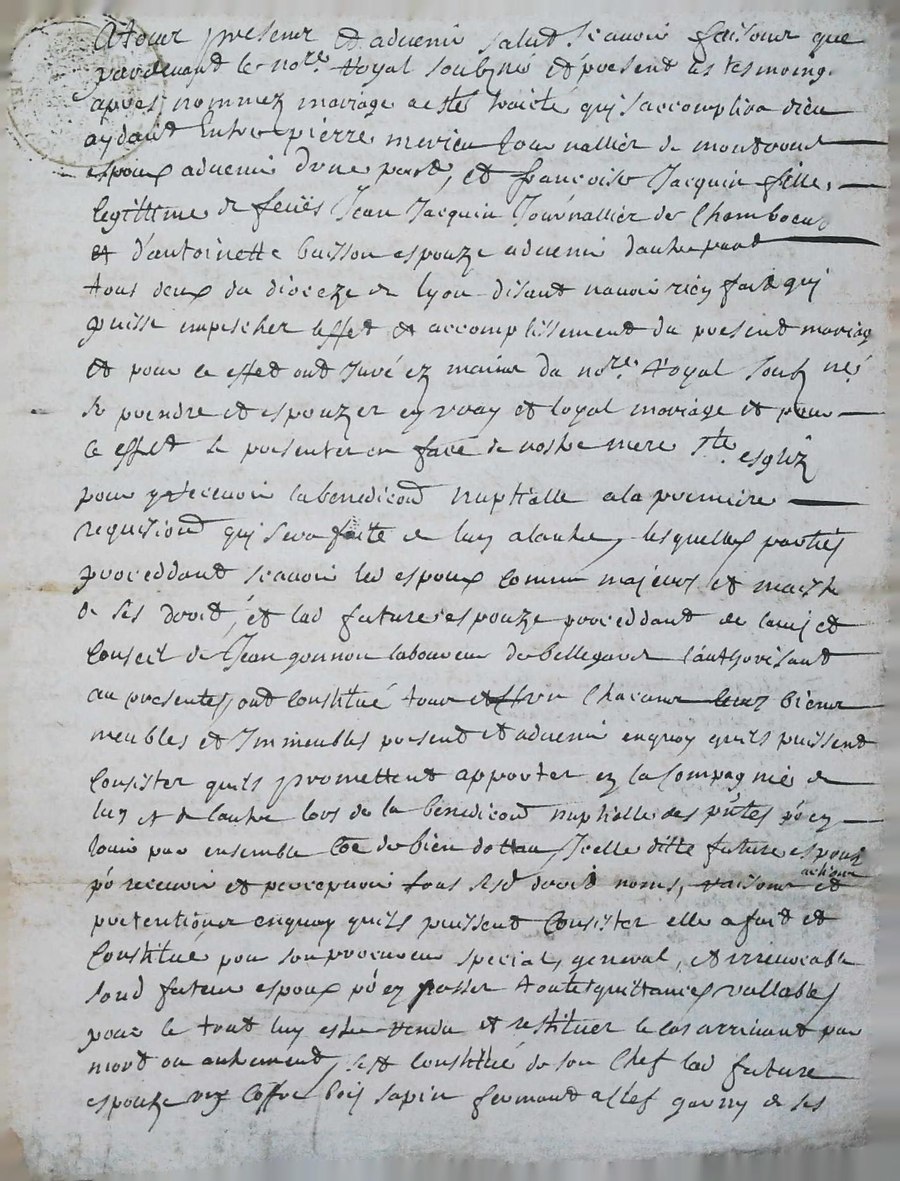 A tous presens et advenir salut scavoir faisons que
pardevant le no.re Royal soubz.né et presents les tesmoing
apres nommez mariage a esté traicté qui s'accomplira dieu
aydant Entre pierre merieu Journallier de montrond
espoux advenir d'une part, et françoise Jacquin fille
legittime de feües Jean Jacquin Journallier de Chamboeuf
et d'antoinette buisson espouze advenir d'autre part
tous deux du dioceze de lyon disant n'avoir rien fait qui
puisse empescher l'effet et accomplissement du present mariage
et pour ce effet ont Juré ez mains du no.re Royal soubz.né
se prendre et espouzer en vray et loyal mariage et pour
ce effet se presenter en face de nostre mere s.te esglize
pour y recevoir la benediction nuptialle a la premiere
requisition qui sera faite de luy a lautre, lesquelles parties
proceddant scavoir led espoux comme majeurs et maistre
de ses droit, et lad future espouze proceddant de lavis et
Conseil de Jean gonnon laboureur de bellegarde l'authorisant
au presentes, ont Constitué tous et Chacuns leurs biens
meubles et Immeubles present et advenir enquoy quils puissent
Consister quils promettent apporter en la Compagnie de
luy et de lautre lors de la benediction nuptialle des p.ntes p.r en
Jouir par ensemble Coe de bien dottau, Icelle ditte future espouze
p.r recevoir et percepvoir tous sesd droit noms, raisons actions et
pretentions enquoy quils puissent Consister elle a fait et
Constitué pour son procureur special, general, et irrevocable
sond futeur espoux p.r en passer toutes quittances vallables
pour le tout luy estre rendu et restituer le cas arrivant par
mort ou autrement, s'est Constitué de son Chef lad future
espouze un Coffre bois sapin fermant a clef garny de ses